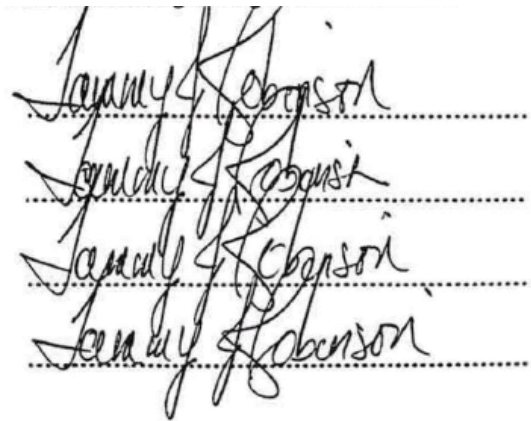 Tammy J Robinson
Tammy J Robinson
Tammy J Robinson
Tammy J Robinson